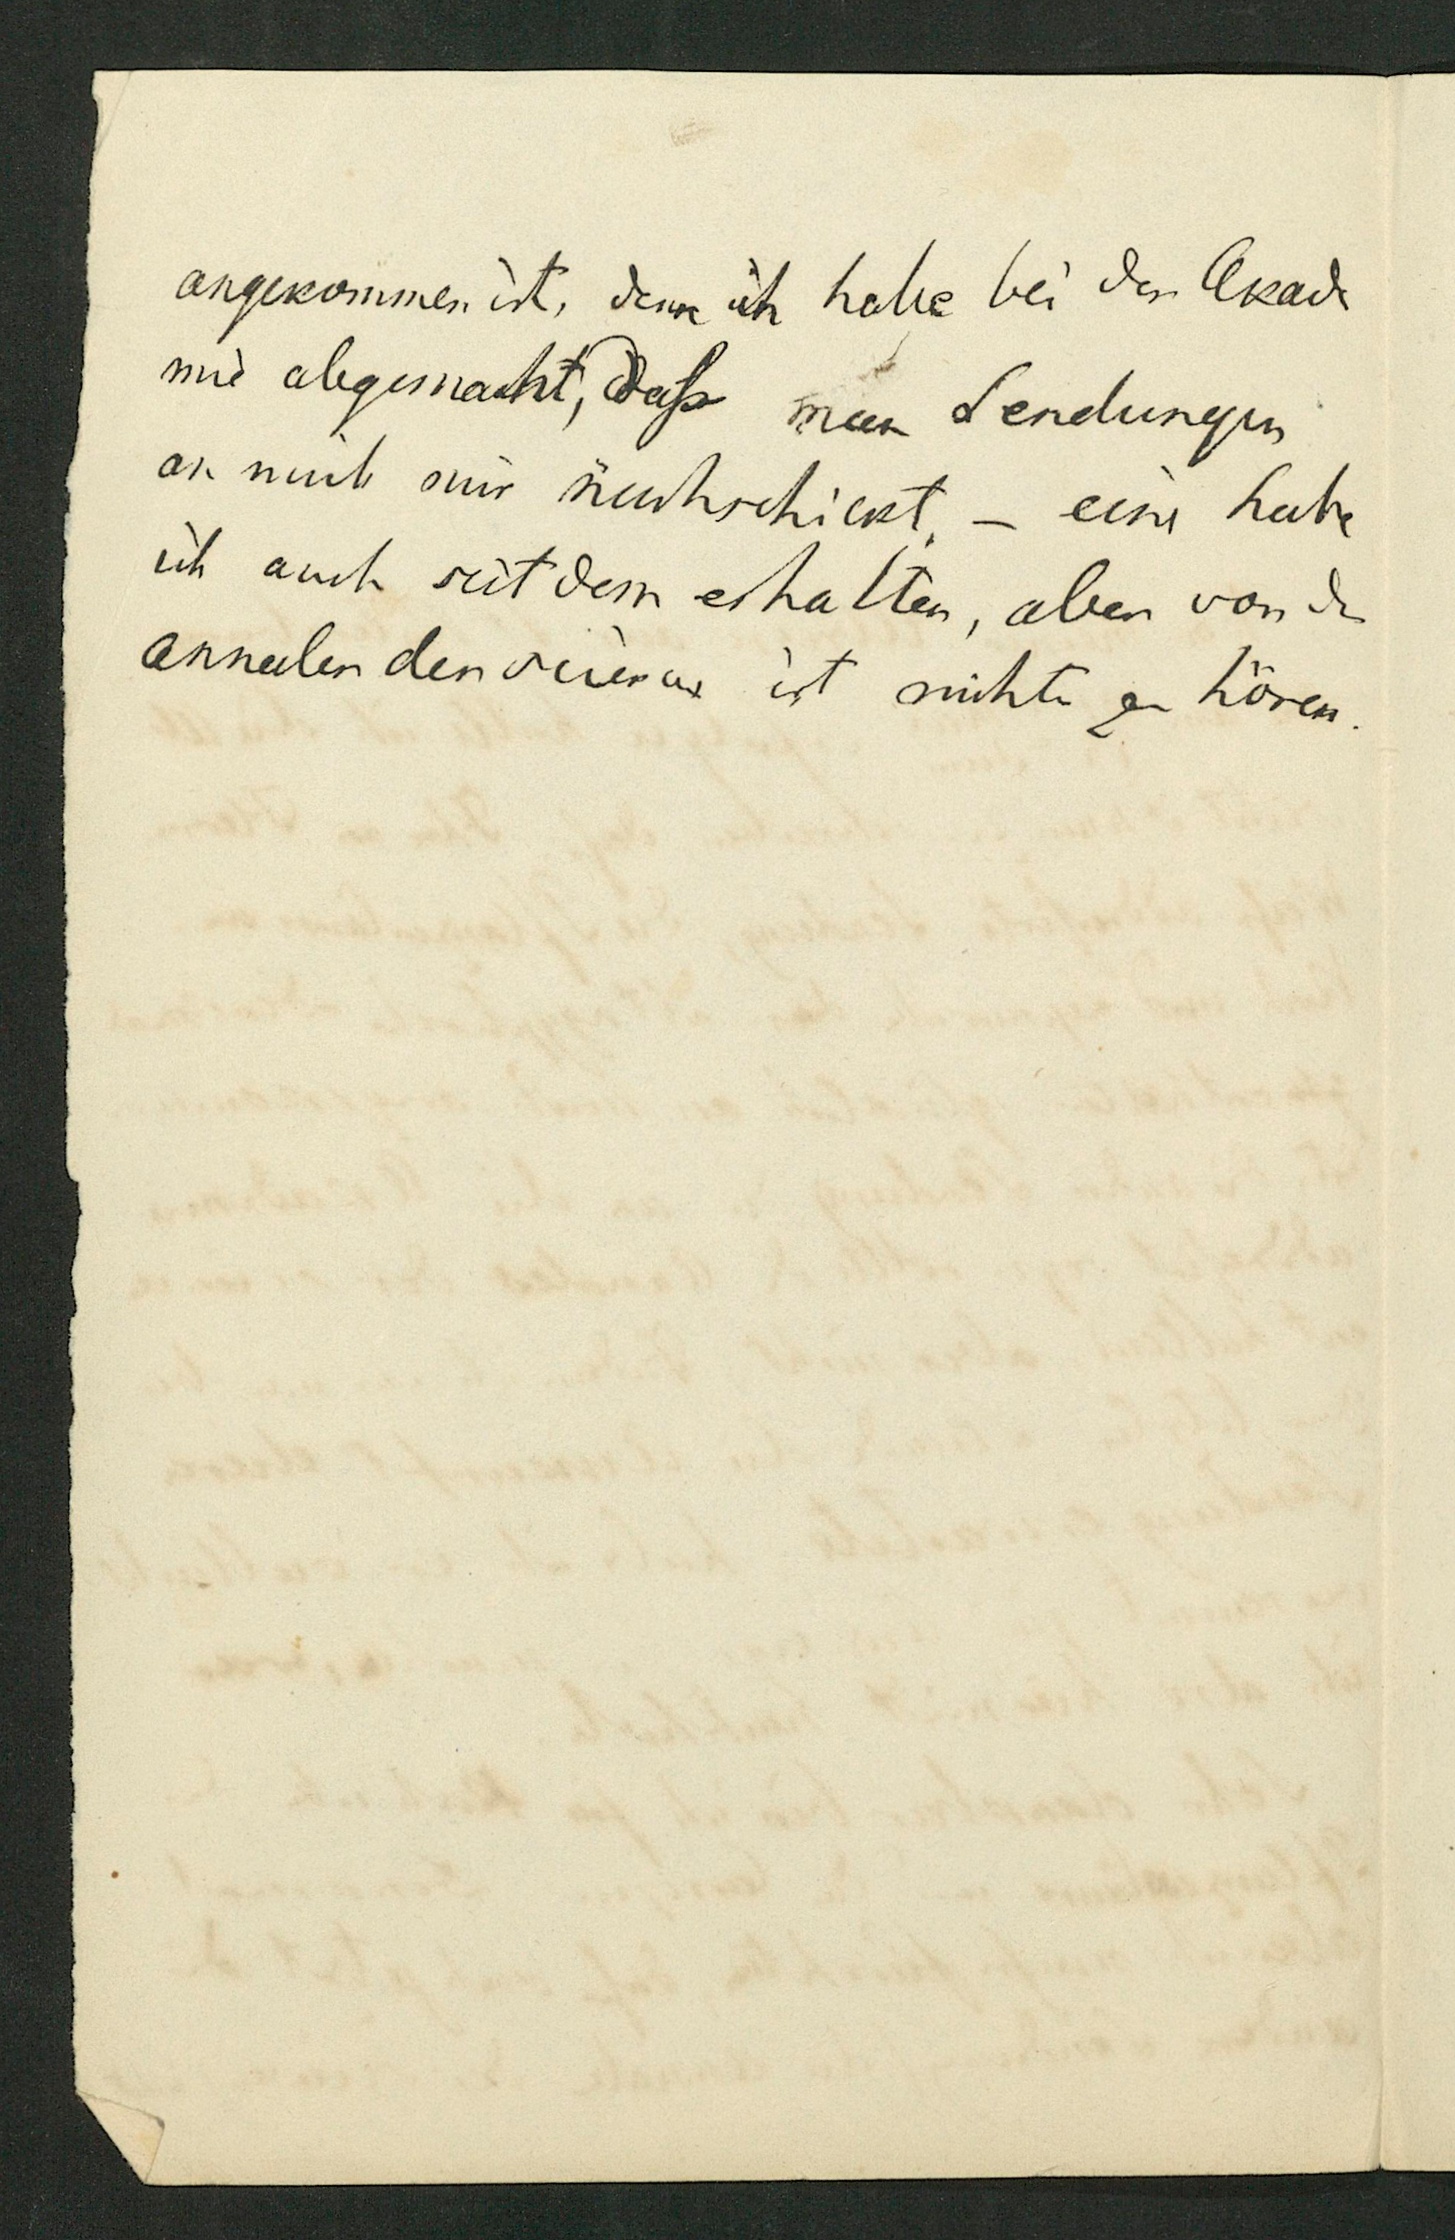 angekommen ist, denn ich habe bei der Akade
mie abgemacht, daß man Sendungen
an mich mir nachschickt, – eine habe
ich auch seitdem erhalten, aber von den
Annalen der ist nichts zu hören.